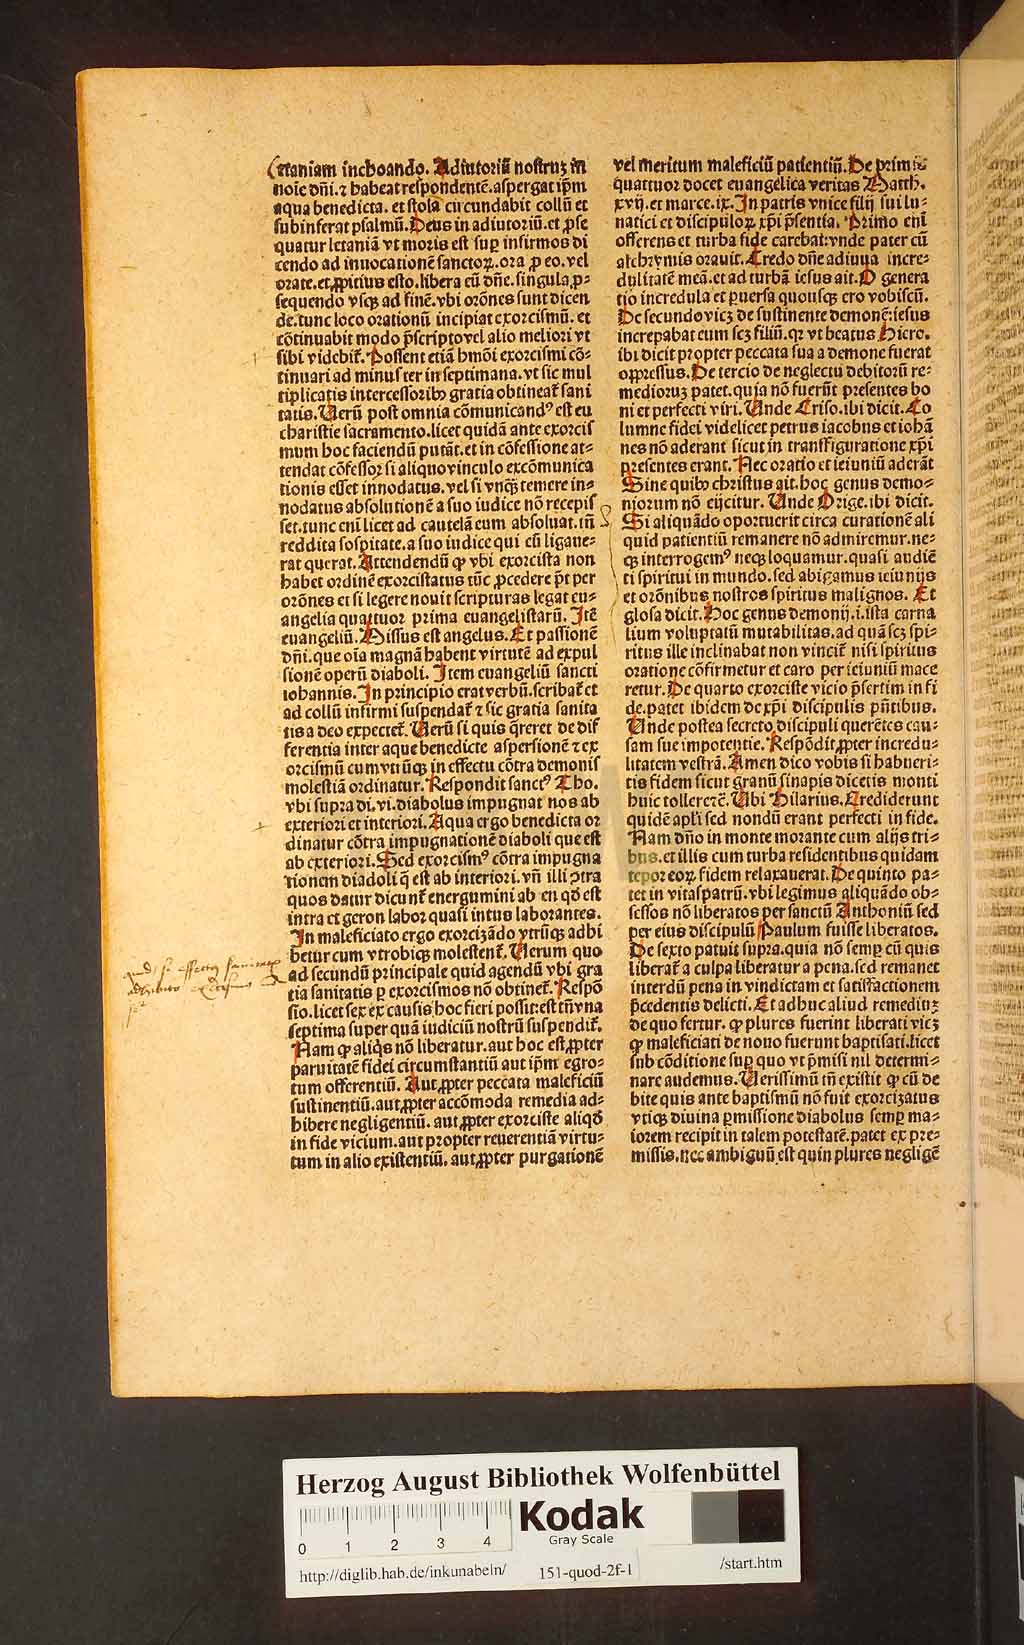 letaniam inchoando. Adiutoriũ nostruʒ in
noĩe dñi. ⁊ habeat respondentẽ. aspergat ip̃m
aqua benedicta. et stola circũdabit collũ et
subinferat psalmũ. Deus in adiutoriũ. et ꝓse
quatur letaniã vt moris est suꝑ infirmos di
cendo ad inuocationẽ sanctoꝝ. ora ꝓ eo. vel
orate. et ꝓpitius esto. libera eũ dñe. singula ꝓ⸗
sequendo vsqꝫ ad finẽ. vbi orõnes sunt dicen
de. tunc loco orationũ incipiat exorcismũ. et
cõtinuabit modo p̃scripto vel alio meliori vt
sibi videbit̃. Possent etiã hmõi exorcismi cõ⸗
tinuari ad minus ter in septimana. vt sic mul
tiplicatis intercessoribꝫ gratia obtineat̃ sani
tatis. Uerũ post omnia cõmunicandꝰ est eu
charistie sacramento. licet quidã ante exorcis
mum hoc faciendũ putãt. et in cõfessione at⸗
tendat cõfessor si aliquo vinculo excõmunica
tionis esset innodatus. vel si vnqꝫ temere in⸗
nodatus absolutionẽ a suo iudice nõ recepis
set. tunc eni licet ad cautelã eum absoluat. tñ
reddita sospitate. a suo iudice qui eũ ligaue⸗
rat querat. Attendendũ ꝙ vbi exorcista non
habet ordinẽ exorcistatus tũc ꝓcedere p̃t per
orõnes et si legere nouit scripturas legat eu⸗
angelia quattuor prima euangelistarũ. Itẽ
euangeliũ. Missus est angelus. Et passionẽ
dñi. que oĩa magnã habent virtutẽ ad expul
sionẽ operũ diaboli. Item euangeliũ sancti
iohannis. In principio erat verbũ. scribat̃ et
ad collũ infirmi suspendat̃ ⁊ sic gratia sanita
tis a deo expectet̃. Uerũ si quis q̃reret de dif
ferentia inter aque benedicte aspersionẽ ⁊ ex
orcismũ cum vtrũqꝫ in effectu cõtra demonis
molestiã ordinatur. Respondit sanctꝰ Tho.
vbi supra di. vi. diabolus impugnat nos ab
exteriori et interiori. Aqua ergo benedicta or
dinatur cõtra impugnationẽ diaboli que est
ab exteriori. Sed exorcismꝰ cõtra impugna
tionem diadoli q̃ est ab interiori. vñ illi ↄtra
quos datur dicunt̃ energumini ab en qð est
intra et geron labor quasi intus laborantes.
In maleficiato ergo exorcizãdo vtrũqꝫ adhi
betur cum vtrobiqꝫ molestent̃. Uerum quo
ad secundũ principale quid agendũ vbi gra
tia sanitatis ꝑ exorcismos nõ obtinet̃. Respõ
sio. licet sex ex causis hoc fieri possit: est tñ vna
septima super quã iudiciũ nostrũ suspendit̃.
Nam ꝙ aliq̃s nõ liberatur. aut hoc est ꝓpter
paruitatẽ fidei circumstantiũ aut ip̃m egro⸗
tum offerentiũ. Aut ꝓpter peccata maleficiũ
sustinentiũ. aut ꝓpter accõmoda remedia ad⸗
hibere negligentiũ. aut ꝓpter exorciste aliqð
in fide vicium. aut propter reuerentiã virtu⸗
tum in alio existentiũ. aut ꝓpter purgationẽ
vel meritum maleficiũ patientiũ. De primis
quattuor docet euangelica veritas Matth.
xvij. et marce. ix. In patris vnice filij sui lu⸗
natici et discipuloꝝ xp̃i p̃sentia. Primo eni
offerens et turba fide carebat: vnde pater cũ
alchrymis orauit. Credo dñe adiuua incre⸗
dulitatẽ meã. et ad turbã iesus ait. O genera
tio incredula et ꝑuersa quousqꝫ ero vobiscũ.
De secundo vicꝫ de sustinente demonẽ: iesus
increpabat eum scꝫ filiũ. qꝛ vt beatus Hiero.
ibi dicit propter peccata sua a demone fuerat
oppressus. De tercio de neglectu debitorũ re⸗
medioruʒ patet. quia nõ fuerũt presentes bo
ni et perfecti viri. Unde Criso. ibi dicit. Co
lumne fidei videlicet petrus iacobus et iohã
nes nõ aderant sicut in transfiguratione xp̃i
presentes erant. Nec oratio et ieiuniũ aderãt
Sine quibꝫ christus ait. hoc genus demo⸗
niorum nõ eijcitur. Unde Orige. ibi dicit.
Si aliquãdo oportuerit circa curationẽ ali
quid patientiũ remanere nõ admiremur. ne⸗
qꝫ interrogemꝰ neqꝫ loquamur. quasi audiẽ
ti spiritui in mundo. sed abigamus ieiunijs
et orõnibus nostros spiritus malignos. Et
glosa dicit. Hoc genus demonij. i. ista carna
lium voluptatũ mutabilitas. ad quã scꝫ spi⸗
ritus ille inclinabat non vincit̃ nisi spiritus
oratione cõfirmetur et caro per ieiuniũ mace
retur. De quarto exorciste vicio p̃sertim in fi
de. patet ibidem de xp̃i discipulis pñtibus.
Unde postea secreto discipuli querẽtes cau⸗
sam sue impotentie. Respõdit ꝓpter incredu⸗
litatem vestrã. Amen dico vobis si habueri⸗
tis fidem sicut granũ sinapis dicetis monti
huic tollererẽ. Ubi Hilarius. Crediderunt
quidẽ apl̃i sed nondũ erant perfecti in fide.
Nam dño in monte morante cum alijs tri⸗
bus. et illis cum turba residentibus quidam
tepor eoꝝ fidem relaxauerat. De quinto pa⸗
tet in vitaspatrũ. vbi legimus aliquãdo ob⸗
sessos nõ liberatos per sanctũ Anthoniũ sed
per eius discipulũ Paulum fuisse liberatos.
De sexto patuit supra. quia nõ semꝑ cũ quis
liberat̃ a culpa liberatur a pena. sed remanet
interdũ pena in vindictam et satisfactionem
p̃cedentis delicti. Et adhuc aliud remediuʒ
de quo fertur. ꝙ plures fuerint liberati vicꝫ
ꝙ maleficiati de nouo fuerunt baptisati. licet
sub cõditione suꝑ quo vt p̃misi nil determi⸗
nare audemus. Uerissimũ tñ existit ꝙ cũ de
bite quis ante baptismũ nõ fuit exorcizatus
vtiqꝫ diuina ꝑmissione diabolus semꝑ ma⸗
iorem recipit in talem potestatẽ. patet ex pre⸗
missis. nec ambiguũ est quin plures negligẽ
Herzog August Bibliothek Wolfenbüttel
Kodak
Gray Scale
0 1 2 3 4
http://diglib.hab.de/inkunabeln/ 151-quod-2f-1 /start.htm